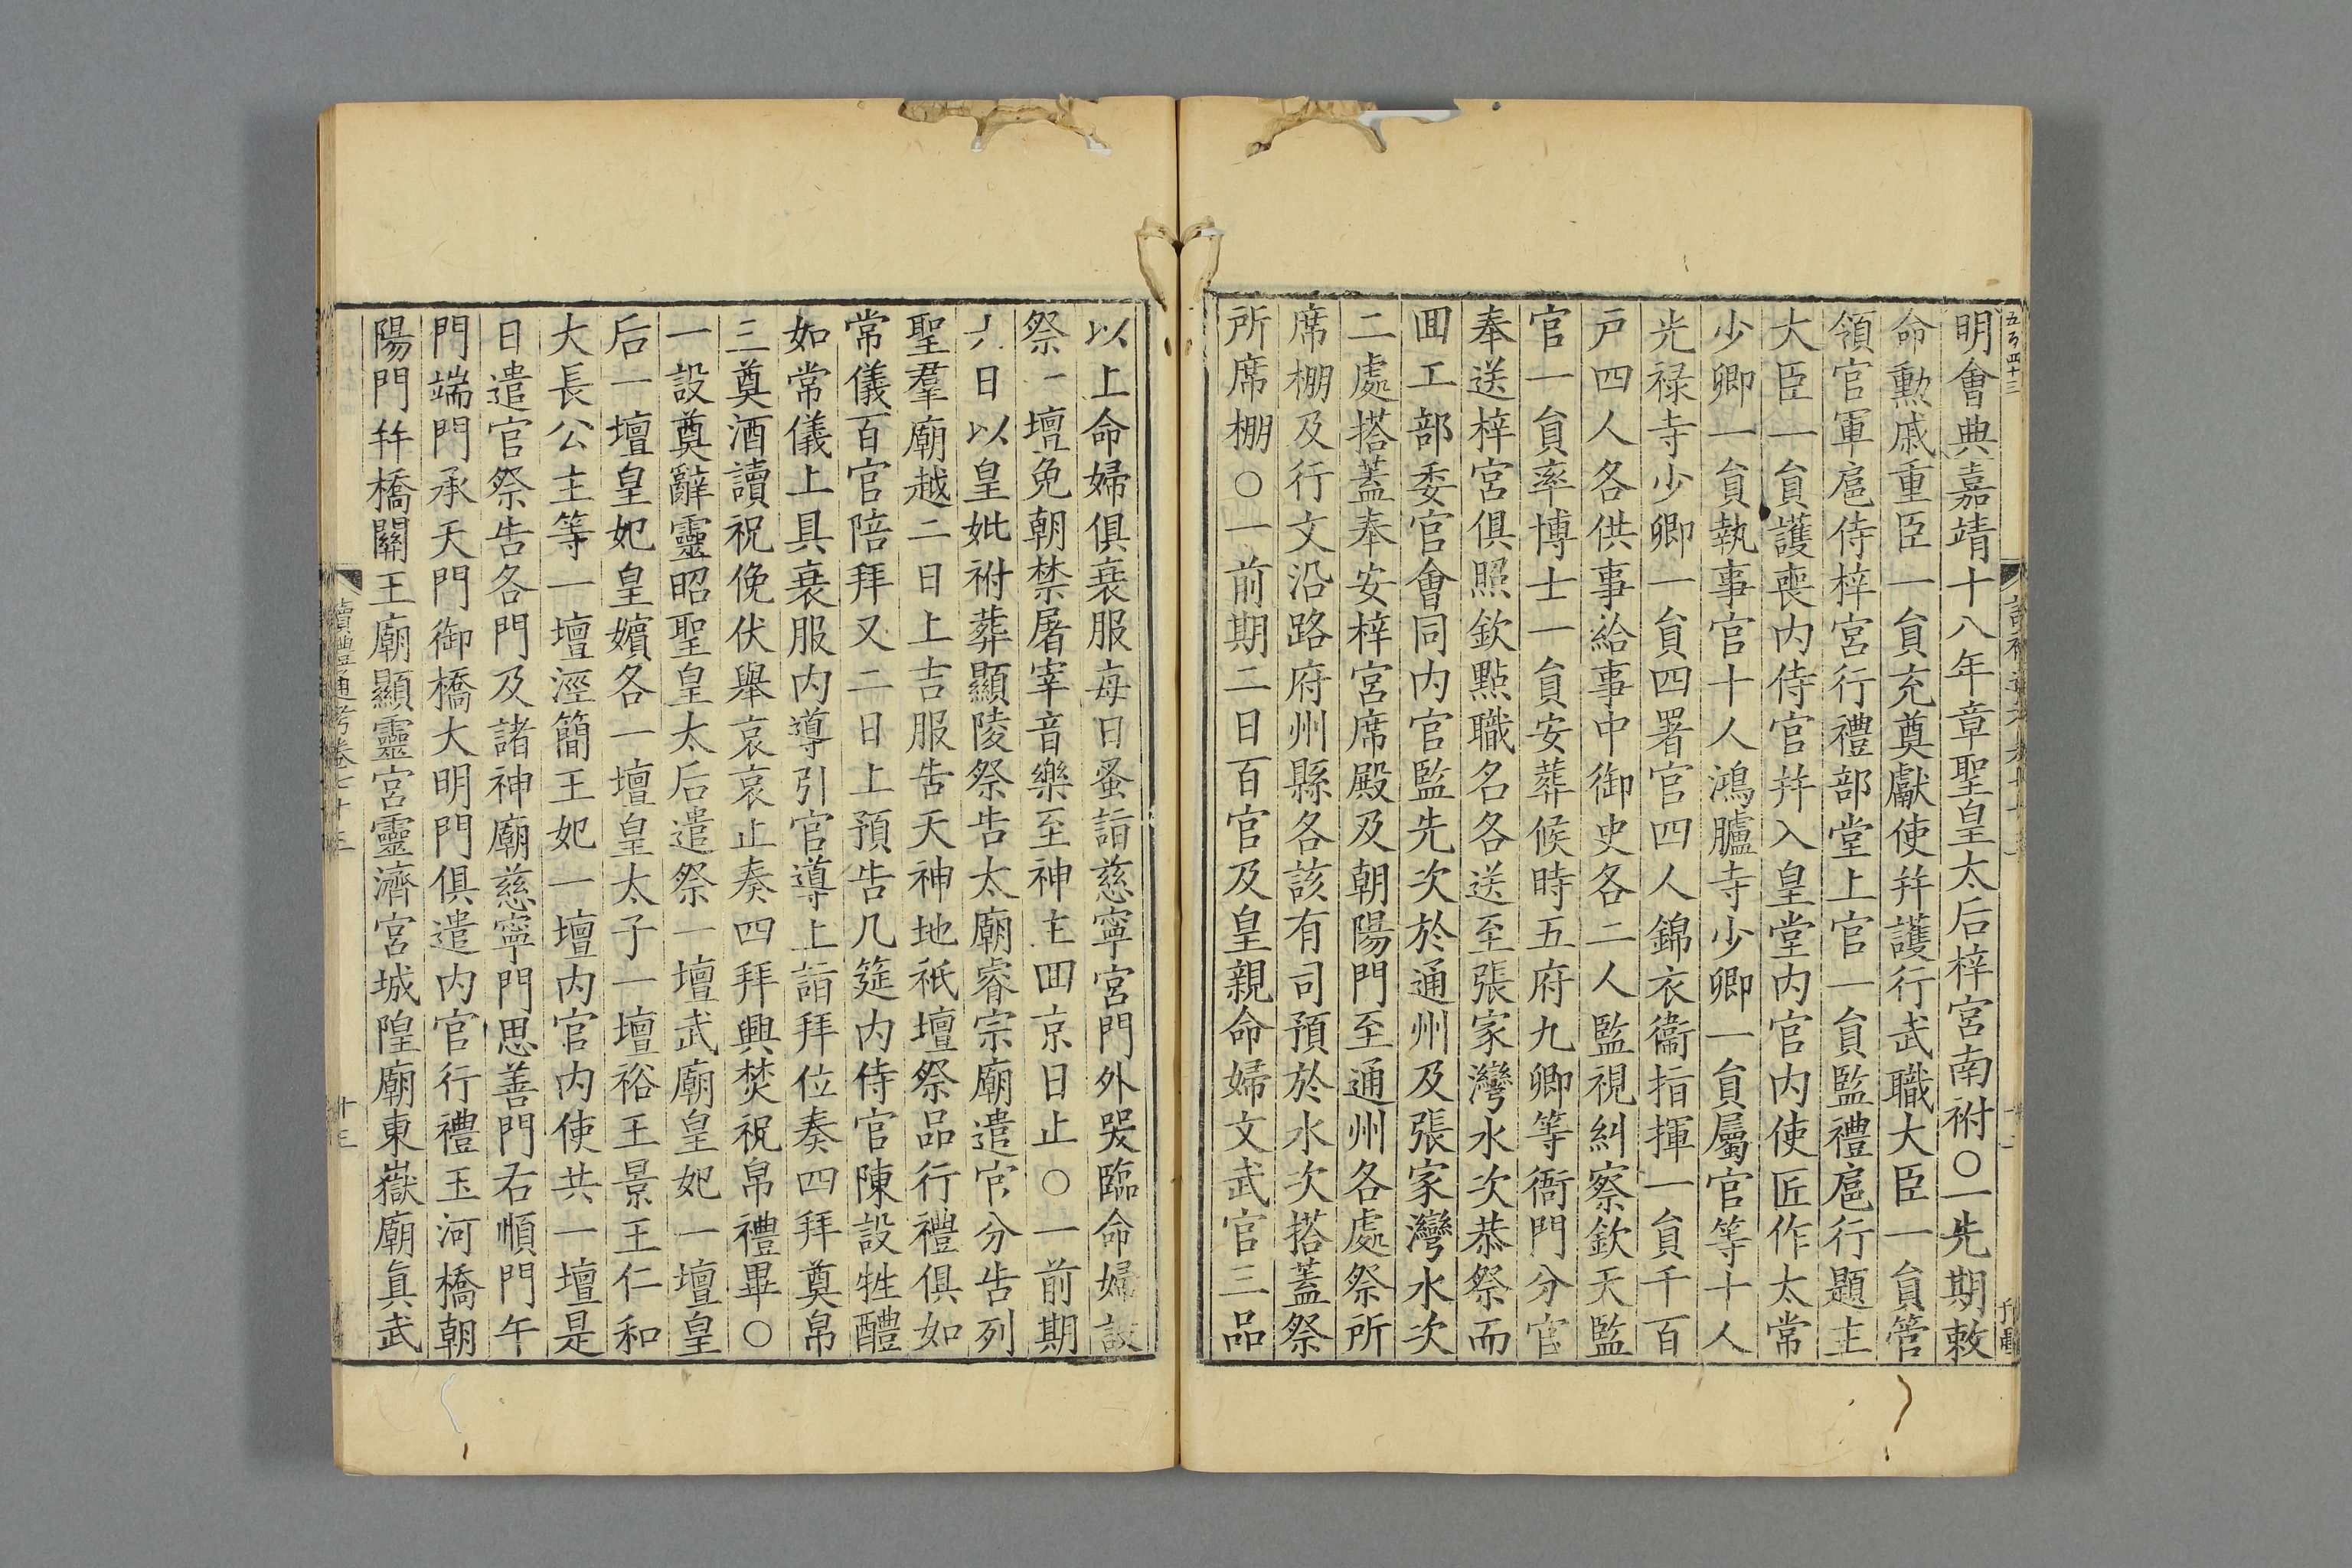 明會典嘉靖十八年章聖皇太后梓宮南祔○一先期敕
命勲戚重臣一員充奠獻使幷護行武職大臣一員管
領官軍扈侍梓宮行禮部堂上官一員監禮扈行題主
大臣一員護喪内侍官幷入皇堂内官内使匠作太常
少卿一員執事官十人鴻臚寺少卿一員屬官等十人
光禄寺少卿一員四署官四人錦衣衞指揮一員千百
戸四人各供事給事中御史各二人監視糾察欽天監
官一員率博士一員安葬候時五府九卿等衙門分官
奉送梓宮俱照欽點職名各送至張家灣水次恭祭而
囬工部委官會同内官監先次於通州及張家灣水次
二處搭蓋奉安梓宮席殿及朝陽門至通州各處祭所
席棚及行文沿路府州縣各該有司預於水次搭蓋祭
所席棚○一前期二日百官及皇親命婦文武官三品
以上命婦俱衰服毎日蚤詣慈寧宮門外哭臨命婦設
祭一壇免朝禁屠宰音樂至神主囬京日止○一前期
六日以皇妣祔葬顯陵祭告太廟睿宗廟遣官分告列
聖羣廟越二日上吉服告天神地祇壇祭品行禮俱如
常儀百官陪拜又二日上預告几筵内侍官陳設牲醴
如常儀上具衰服内導引官導上詣拜位奏四拜奠帛
三奠酒讀祝俛伏舉哀哀止奏四拜興焚祝帛禮畢○
一設奠辭靈昭聖皇太后遣祭一壇武廟皇妃一壇皇
后一壇皇妃皇嬪各一壇皇太子一壇裕王景王仁和
大長公主等一壇涇簡王妃一壇内官内使共一壇是
日遣官祭告各門及諸神廟慈寧門思善門右順門午
門端門承天門御橋大明門俱遣内官行禮玉河橋朝
陽門幷橋關王廟顯靈宮靈濟宮城隍廟東嶽廟眞武
讀禮通考卷七十五
十三